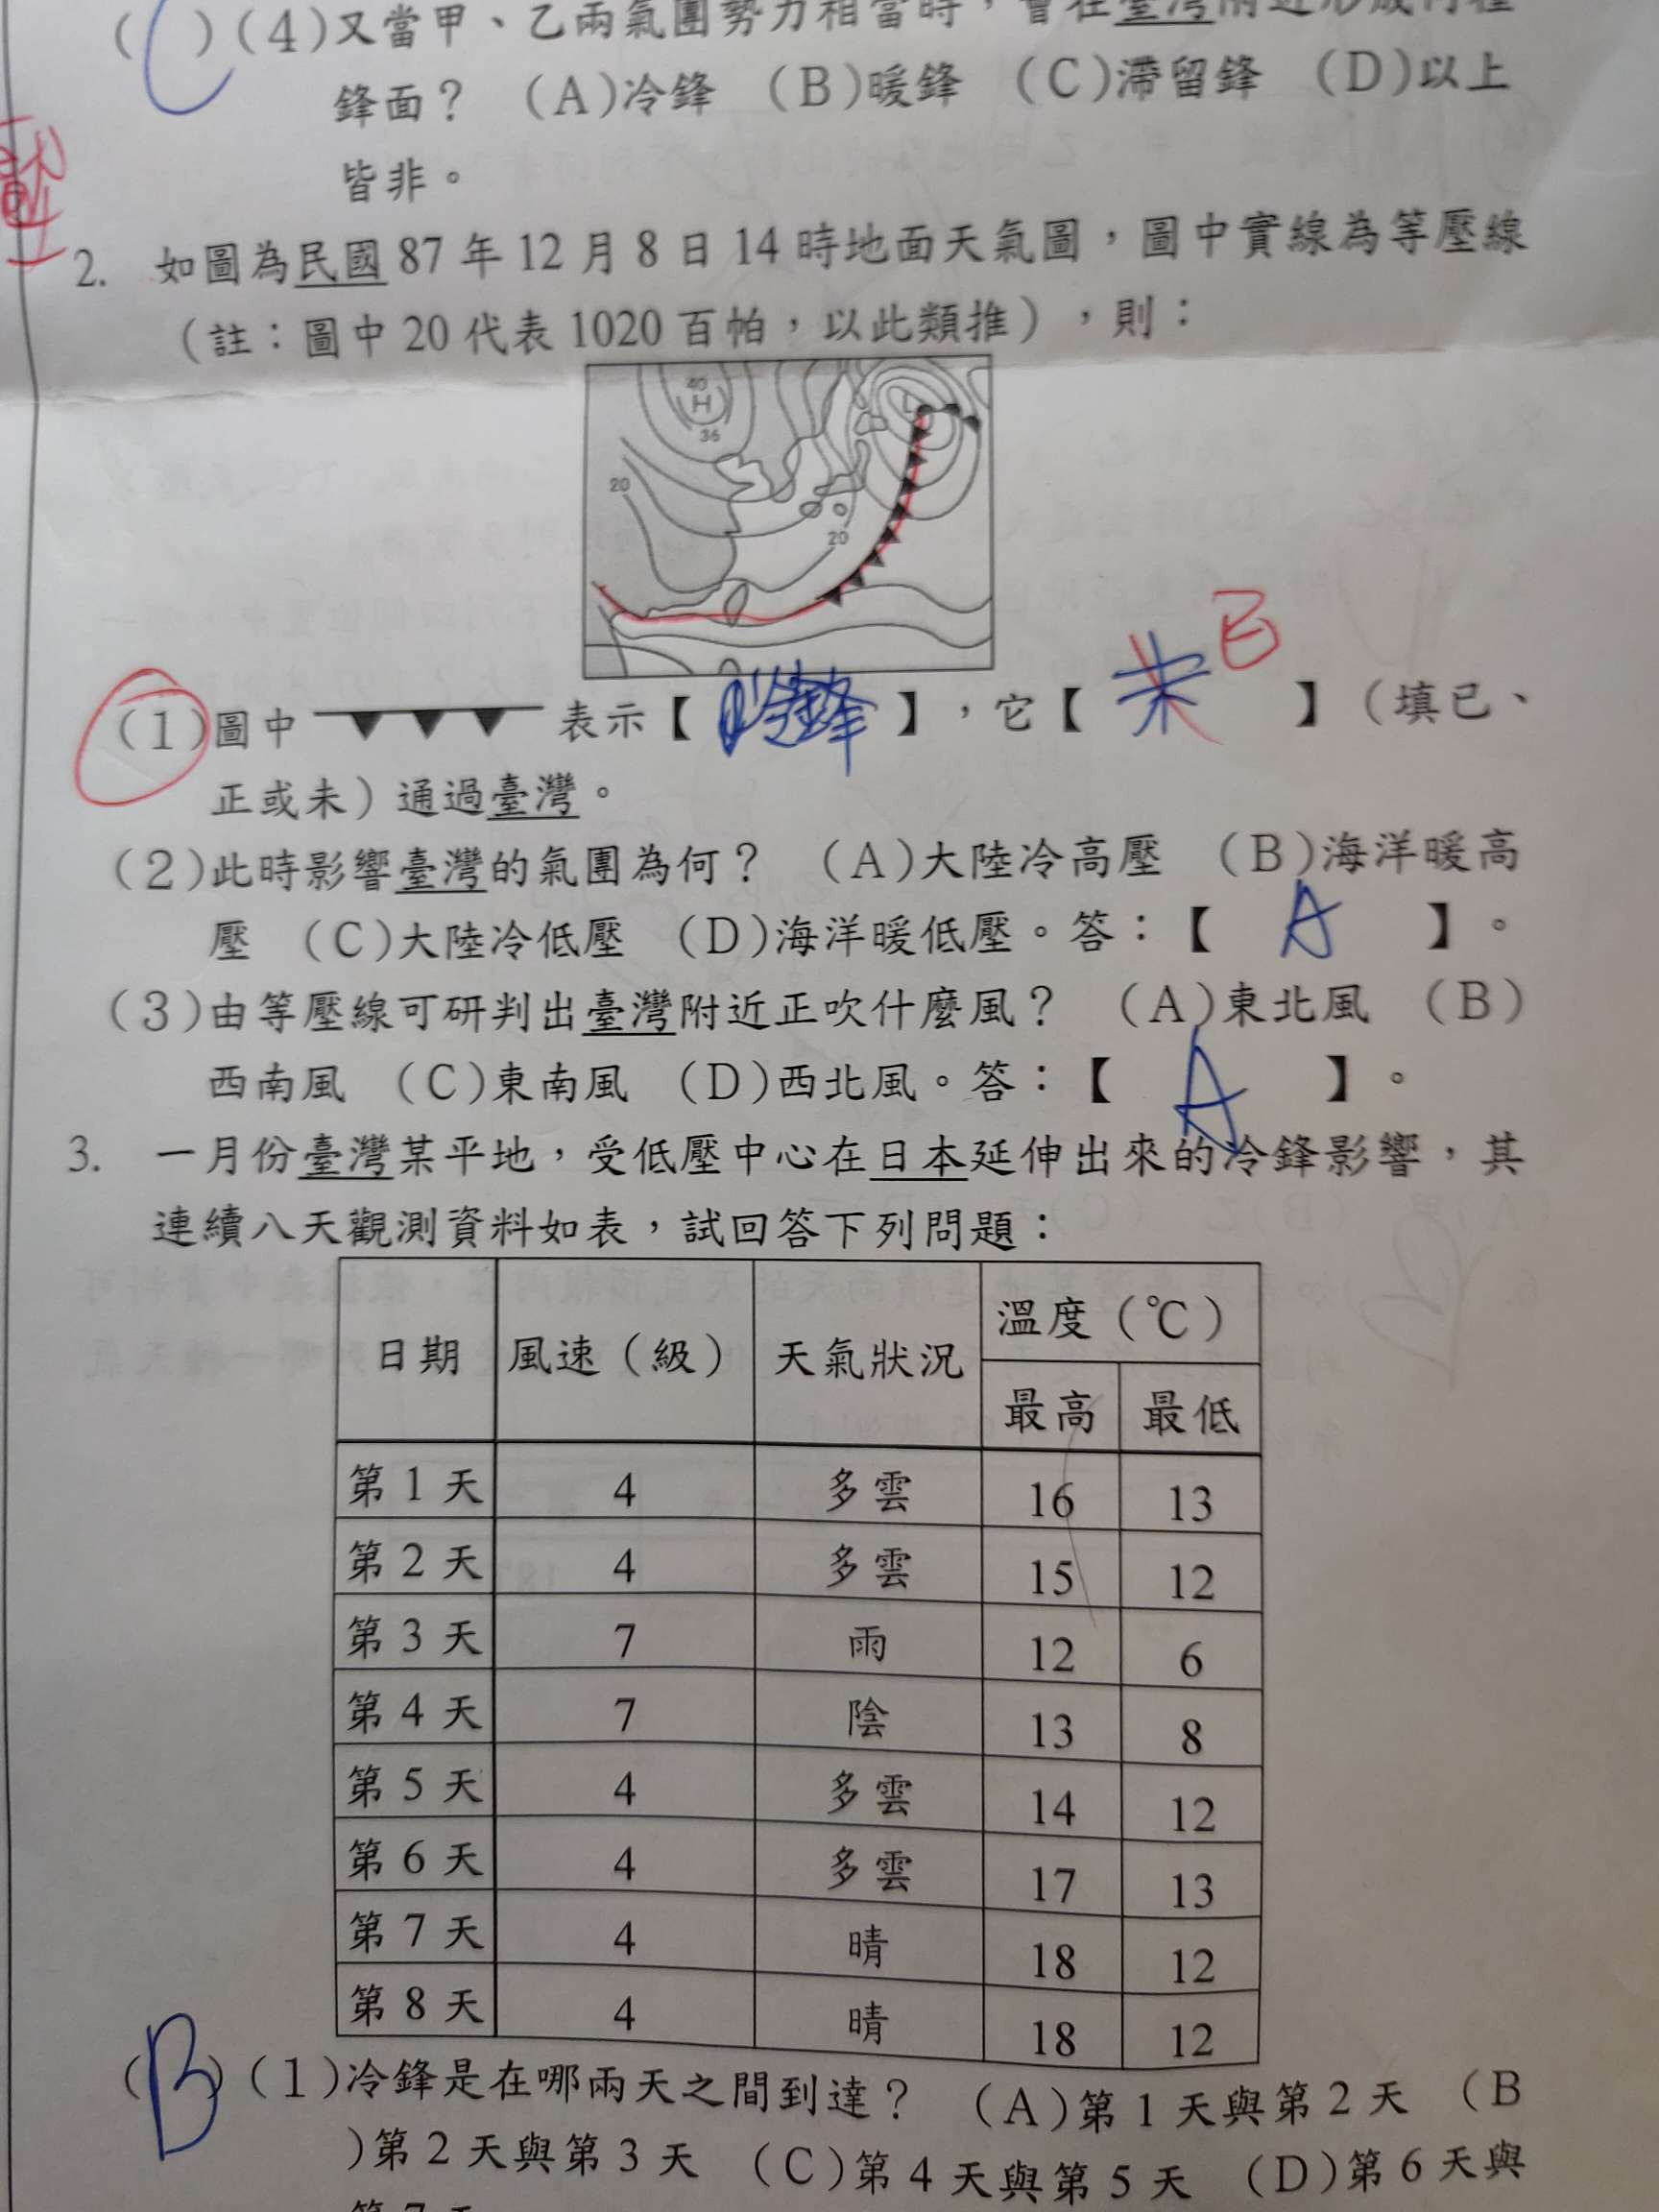 ( )(4)又當甲、乙兩氣團勢力相當時，會在臺灣附近形成何種
鋒面？ (A)冷鋒 (B)暖鋒 (C)滯留鋒 (D)以上
皆非。
2. 如圖為民國 87 年 12 月 8 日 14 時地面天氣圖，圖中實線為等壓線
（註：圖中 20 代表 1020 百帕，以此類推），則：
40
H
36
L
20
20
(1)圖中 表示【 冷鋒 】，它【 未 已 】（填已、
正或未）通過臺灣。
(2)此時影響臺灣的氣團為何？ (A)大陸冷高壓 (B)海洋暖高
壓 (C)大陸冷低壓 (D)海洋暖低壓。答：【 A 】。
(3)由等壓線可研判出臺灣附近正吹什麼風？ (A)東北風 (B)
西南風 (C)東南風 (D)西北風。答：【 A 】。
3. 一月份臺灣某平地，受低壓中心在日本延伸出來的冷鋒影響，其
連續八天觀測資料如表，試回答下列問題：
日期 風速（級） 天氣狀況 溫度（℃）
最高 最低
第 1 天 4 多雲 16 13
第 2 天 4 多雲 15 12
第 3 天 7 雨 12 6
第 4 天 7 陰 13 8
第 5 天 4 多雲 14 12
第 6 天 4 多雲 17 13
第 7 天 4 晴 18 12
第 8 天 4 晴 18 12
(B)(1)冷鋒是在哪兩天之間到達？ (A)第 1 天與第 2 天 (B
)第 2 天與第 3 天 (C)第 4 天與第 5 天 (D)第 6 天與